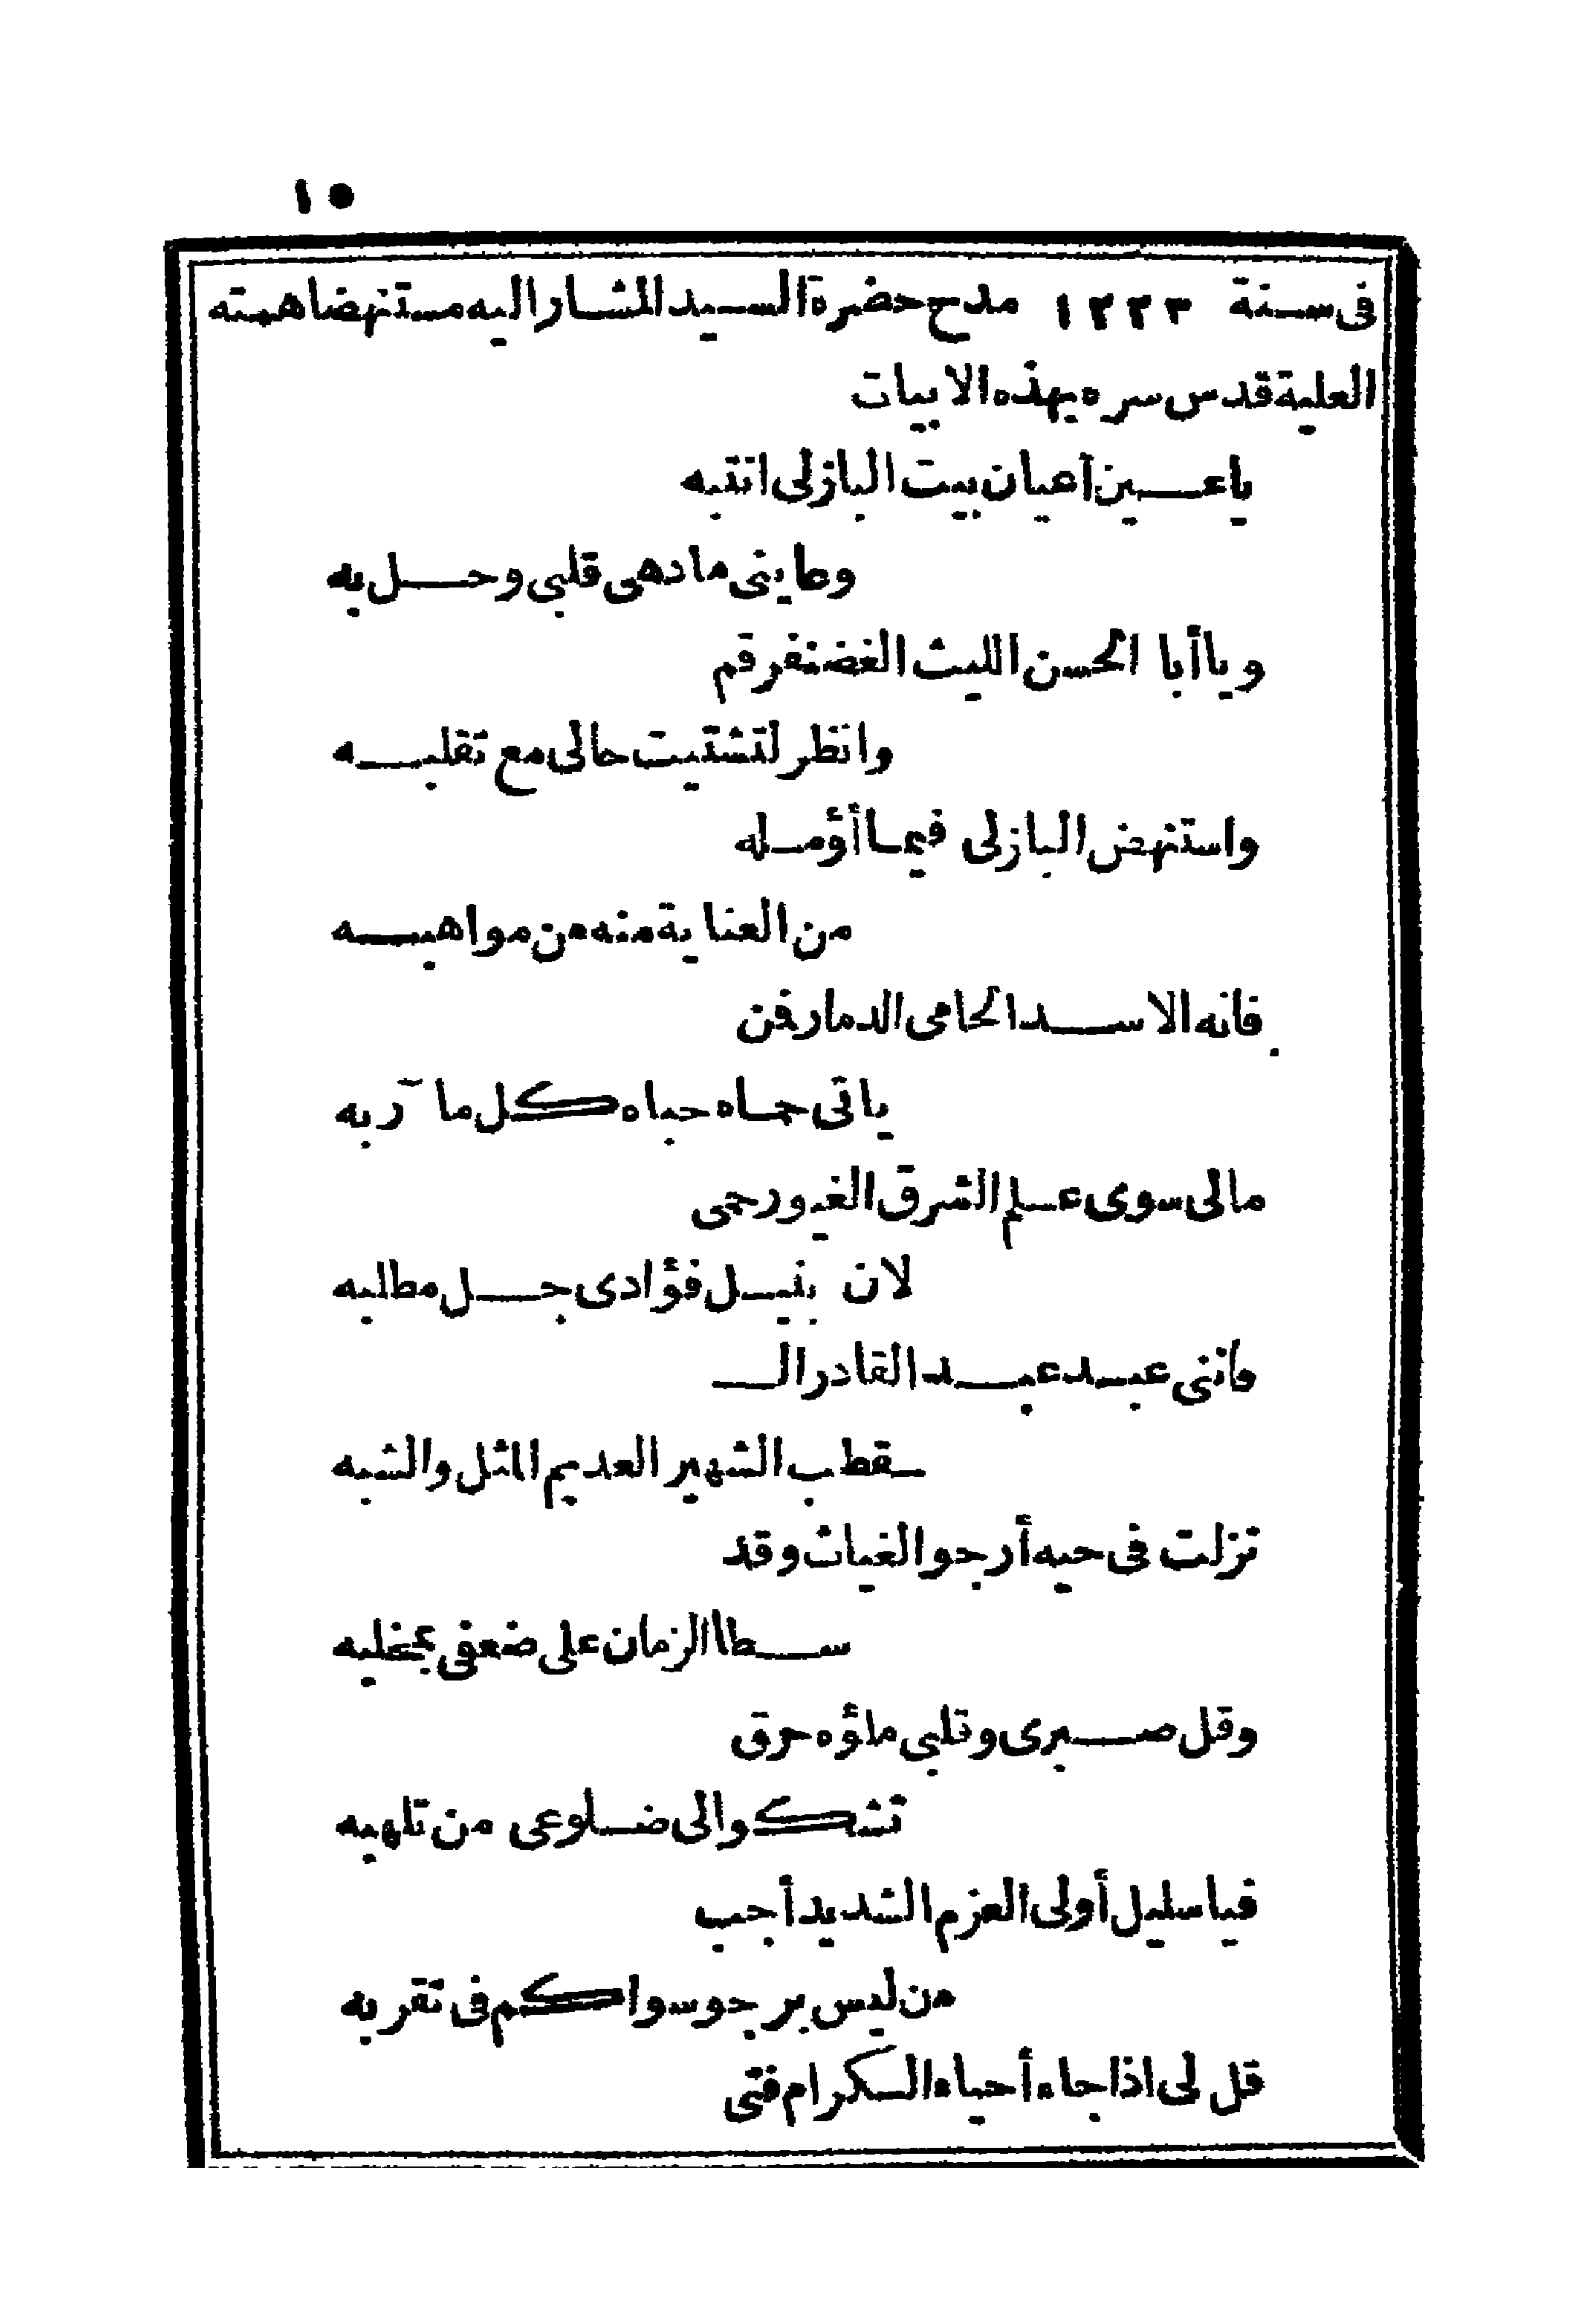 ١٥
فى سنة ١٢٣٣ مدح حضرة السيد المشار اليه مستنهضا همته
العلية قدس سره بهذه الابيات
ياعين أعيان بيت البازلى انتبه
وعاينى مادهى قلبى وحل به
ويا أبا الحسن الليث الغضنفر قم
وانظر لتشتيت حالى مع تقلبه
واستنهض البازلى فيما أؤمله
من العناية منه من مواهبه
فانه الاسد الحامى الدمار فن
ياتى حماه حباه كل مآربه
مالى سوى علم الشرق الغيور حمى
لان بنيل فؤادى جل مطلبه
فاننى عبد عبد القادر الـ
ـقطب الشهير العديم المثل والشبه
نزلت فى حيه أرجو الغياث وقد
سطا الزمان على ضعفى بمخلبه
وقل صبرى وقلبى ملؤه حرق
تشكو الى ضلوعى من تلهبه
فيا سليل أولى العزم الشديد أجب
من ليس يرجو سواكم فى تقربه
قل لى اذا جاء أحياء الكرام فتى